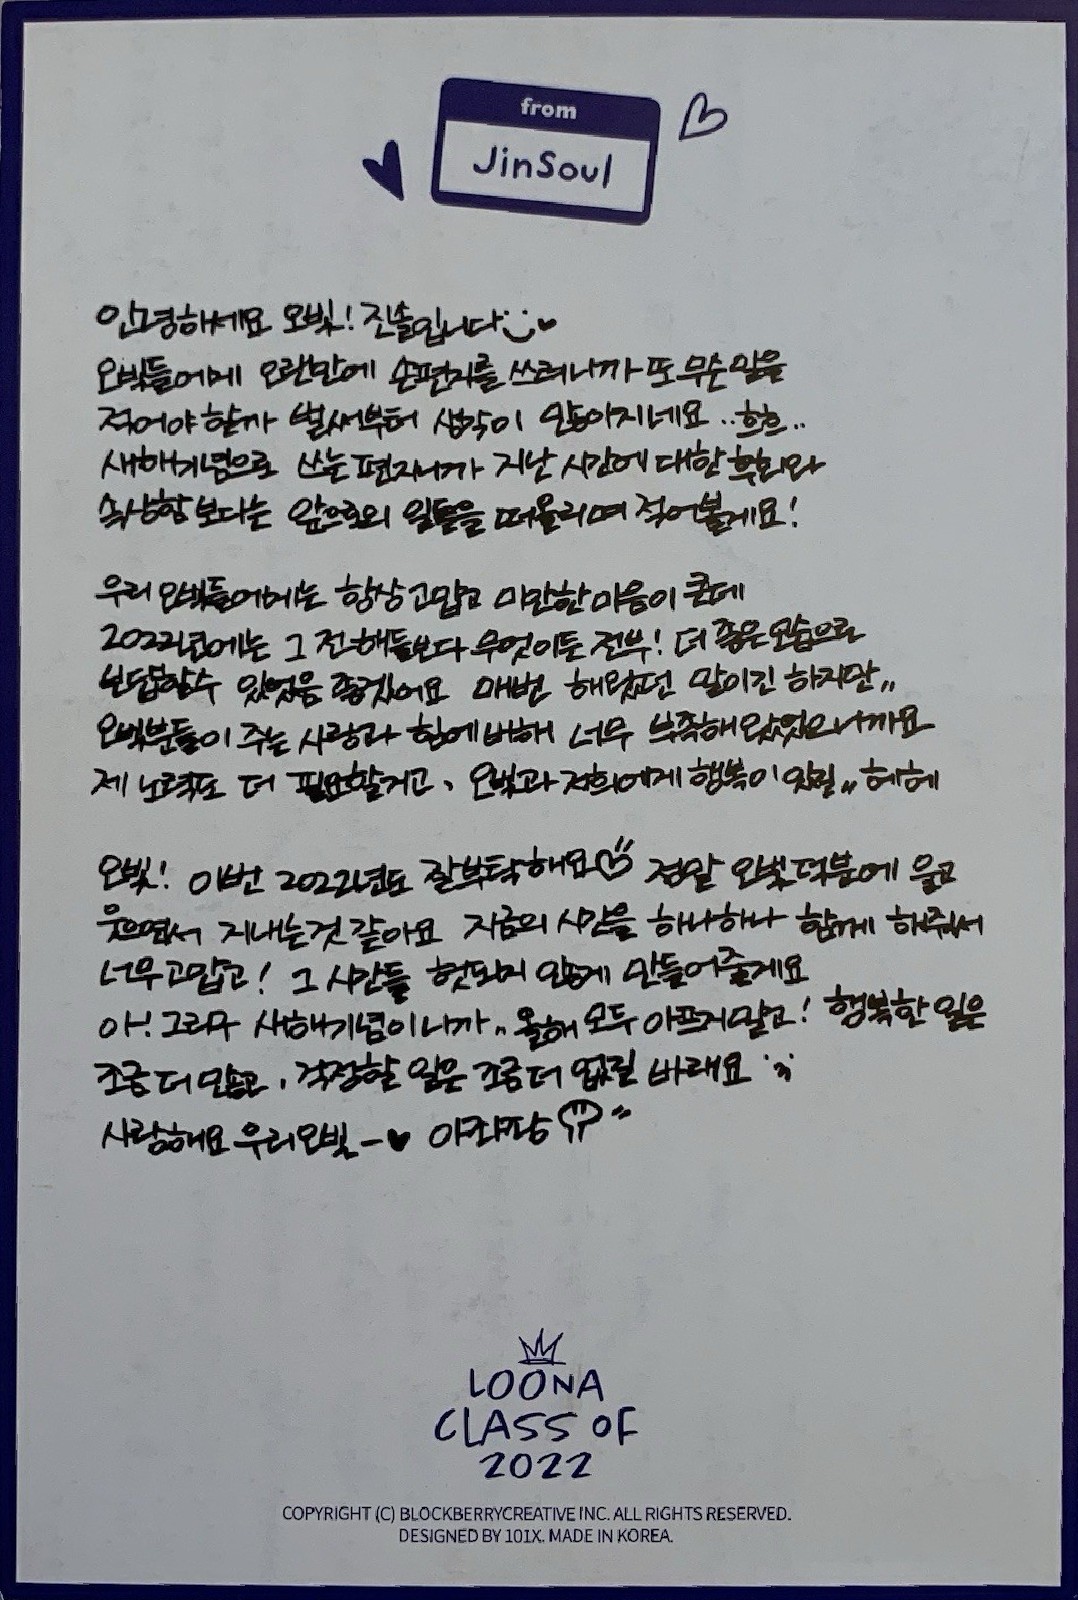 from
JinSoul
안녕하세요 오빛! 진솔입니다
오빛들에게 오랜만에 손편지를 쓰려니까 또 무슨 말을
적어야 할까 벌써부터 생각이 많아지네요 ..흐흐..
새해기념으로 쓰는 편지니까 지난 시간에 대한 후회와
속상함보다는 앞으로의 일들을 떠올리며 적어볼게요!
우리 오빛들에게는 항상 고맙고 미안한 마음이 큰데
2022년에는 그 전 해들보다 무엇이든 전부! 더 좋은 모습으로
보답할수 있었음 좋겠어요 매번 해왔던 말이긴 하지만,,
오빛분들이 주는 사랑과 힘에 비해 너무 부족해왔었으니까요
제 노력도 더 필요할거고, 오빛과 저희에게 행복이 있길,, 헤헤
오빛! 이번 2022년도 잘부탁해요 정말 오빛 덕분에 울고
웃으면서 지내는것 같아요 지금의 시간을 하나하나 함께 해줘서
너무고맙고! 그 시간들 헛되지 않게 만들어줄게요
아! 그리구 새해기념이니까,, 올해 모두 아프지말고! 행복한 일은
조금 더 많고, 걱정할 일은 조금 더 없길 바래요
사랑해요 우리오빛 ㅡ 야랴팡
LOONA
CLASS OF
2022
COPYRIGHT (C) BLOCKBERRYCREATIVE INC. ALL RIGHTS RESERVED.
DESIGNED BY 101X. MADE IN KOREA.